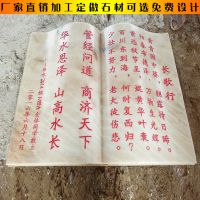 厂家直销加工定做石材可选免费设计
长歌行
青青园中葵 朝露待日晞
阳春布德泽 万物生光辉
常恐秋节至 焜黄华叶衰
百川东到海 何时复西归
少壮不努力 老大徒伤悲
管经问道 商济天下
华水恩泽 山高水长
全体同学敬立
二〇一六年六月十八日